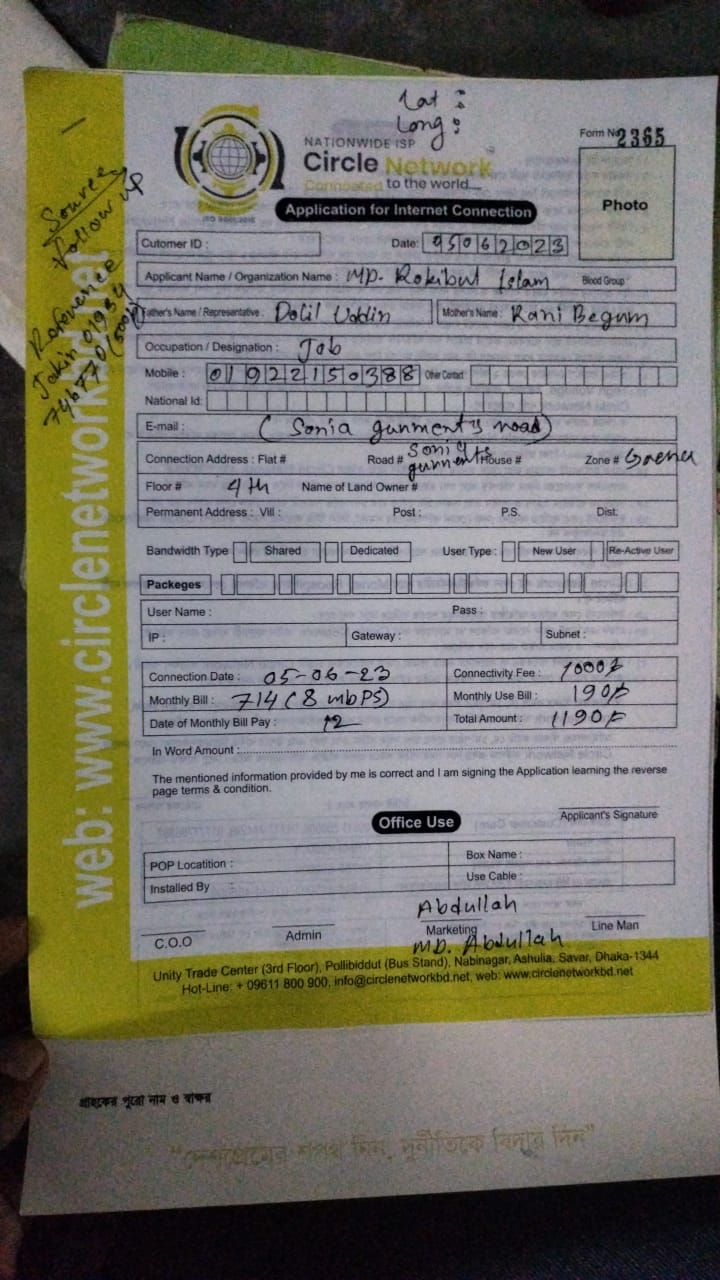 Lat :
Long :
NATIONWIDE ISP
Circle Network
Connected to the world....
ISO 9001:2015
Form No 2365
Photo
Application for Internet Connection
Source
Follow up
Reference
Jakir 01984
746770 (500/)
web: www.circlenetworkbd.net
Cutomer ID :
Date: 05062023
Applicant Name / Organization Name : MD. Rokibul Islam Blood Group :
Father's Name / Representative : Dolil Uddin Mother's Name : Rani Begum
Occupation / Designation : Job
Mobile : 01922150388 Other Contact
National Id:
E-mail : ( Sonia gunment's road)
Connection Address : Flat # Road # Sonia gunments House # Zone #
Floor # 4th Name of Land Owner #
Permanent Address : Vill : Post : P.S. Dist.
Bandwidth Type Shared Dedicated User Type : New User Re-Active User
Packeges
User Name : Pass :
IP : Gateway : Subnet :
Connection Date : 05-06-23 Connectivity Fee : 1000/-
Monthly Bill : 714 (8 mbps) Monthly Use Bill : 190/-
Date of Monthly Bill Pay : 12 Total Amount : 1190/-
In Word Amount :
The mentioned information provided by me is correct and I am signing the Application learning the reverse
page terms & condition.
Applicant's Signature
Office Use
POP Locatition : Box Name :
Installed By : Use Cable :
Abdullah
C.O.O Admin Marketing Line Man
MD. Abdullah
Unity Trade Center (3rd Floor), Pollibiddut (Bus Stand), Nabinagar, Ashulia, Savar, Dhaka-1344
Hot-Line: + 09611 800 900, info@circlenetworkbd.net, web: www.circlenetworkbd.net
গ্রাহকের পুরো নাম ও স্বাক্ষর
"দেশপ্রেমের শপথ নিন, দুর্নীতিকে বিদায় দিন"